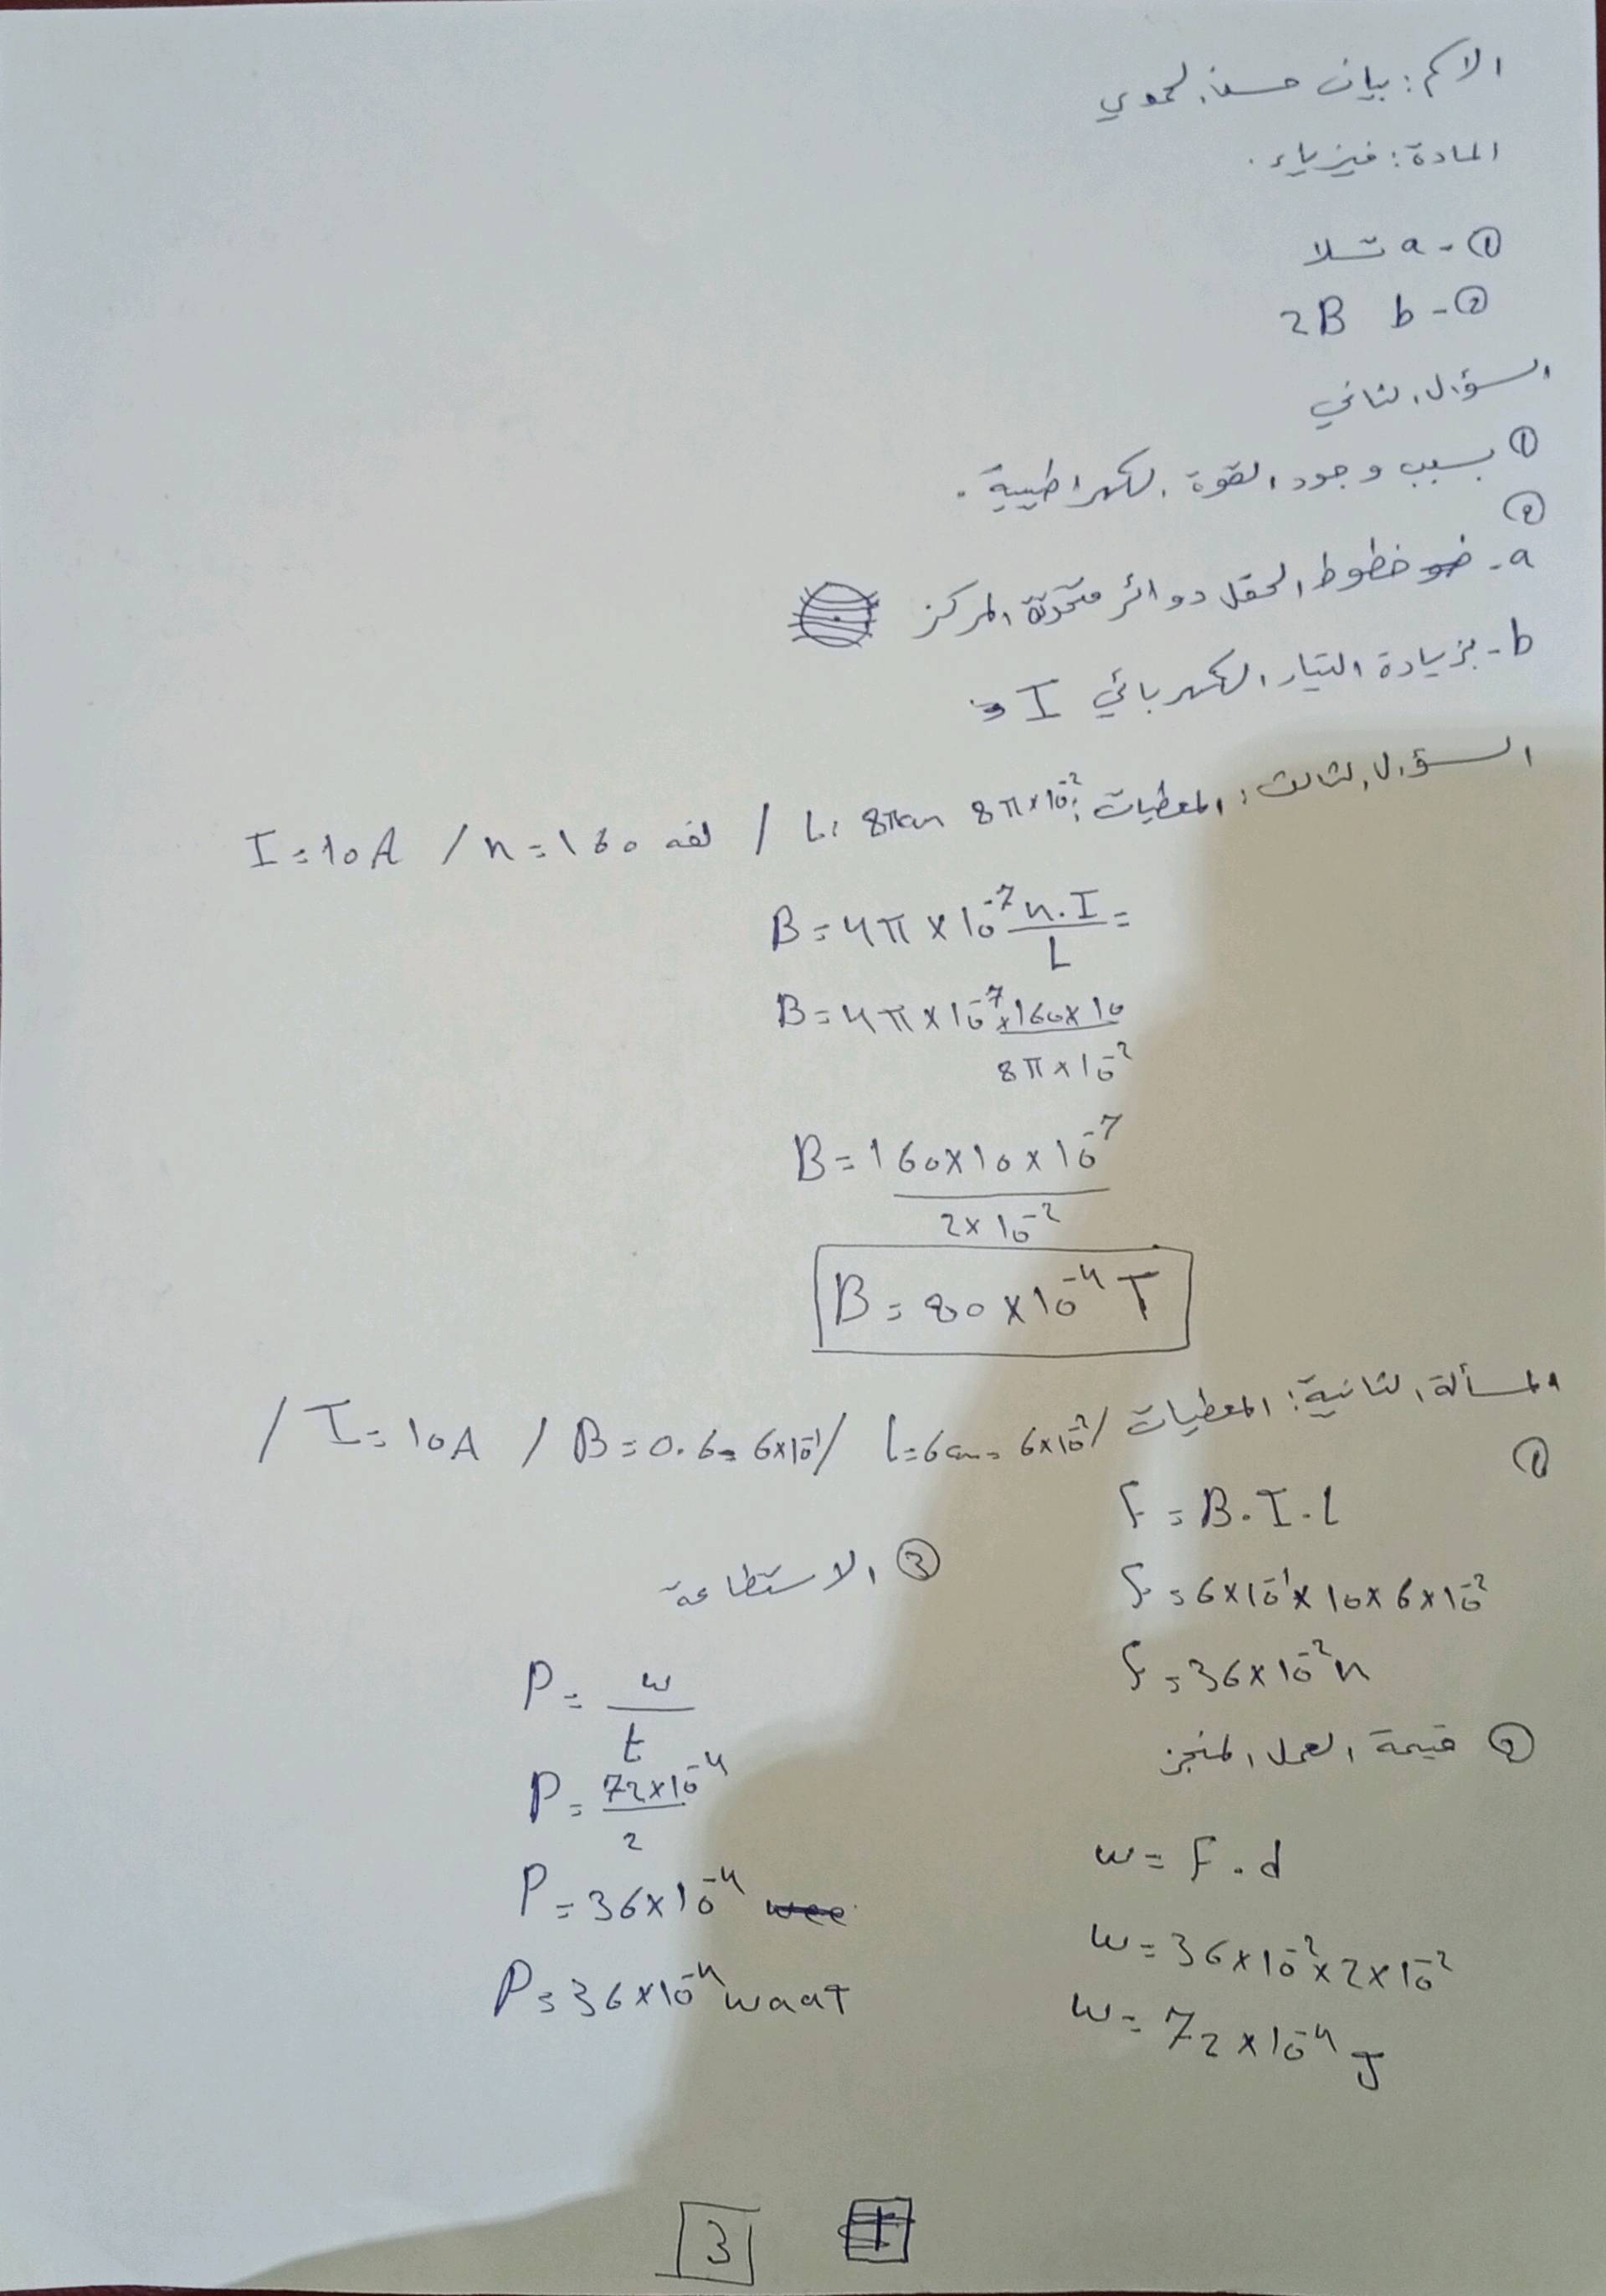 الاسم: بيان حسن الحموي
المادة: فيزياء.
① - a تسلا
② - b 2B
السؤال الثاني
① بسبب وجود القوة الكهراطيسية.
②
a - خطوط الحقل دوائر متحدة المركز
b - بزيادة التيار الكهربائي I
السؤال الثالث: المعطيات: L: 8πcm 8π×10⁻² / لفه n=160 / I=10A
B = 4π×10⁻⁷ n.I / L =
B = 4π×10⁻⁷ × 160×10 / 8π×10⁻²
B = 160×10×10⁻⁷ / 2×10⁻²
B = 80×10⁻⁴ T
المسألة الثانية: المعطيات / l=6cm = 6×10⁻² / B=0.6 = 6×10⁻¹ / I=10A /
①
F = B.I.L
F = 6×10⁻¹×10×6×10⁻²
F = 36×10⁻² n
② قيمة العمل المنجز
w = F.d
w = 36×10⁻²×2×10⁻²
w = 72×10⁻⁴ J
③ الاستطاعة
P = w / t
P = 72×10⁻⁴ / 2
P = 36×10⁻⁴
P = 36×10⁻⁴ waat
3